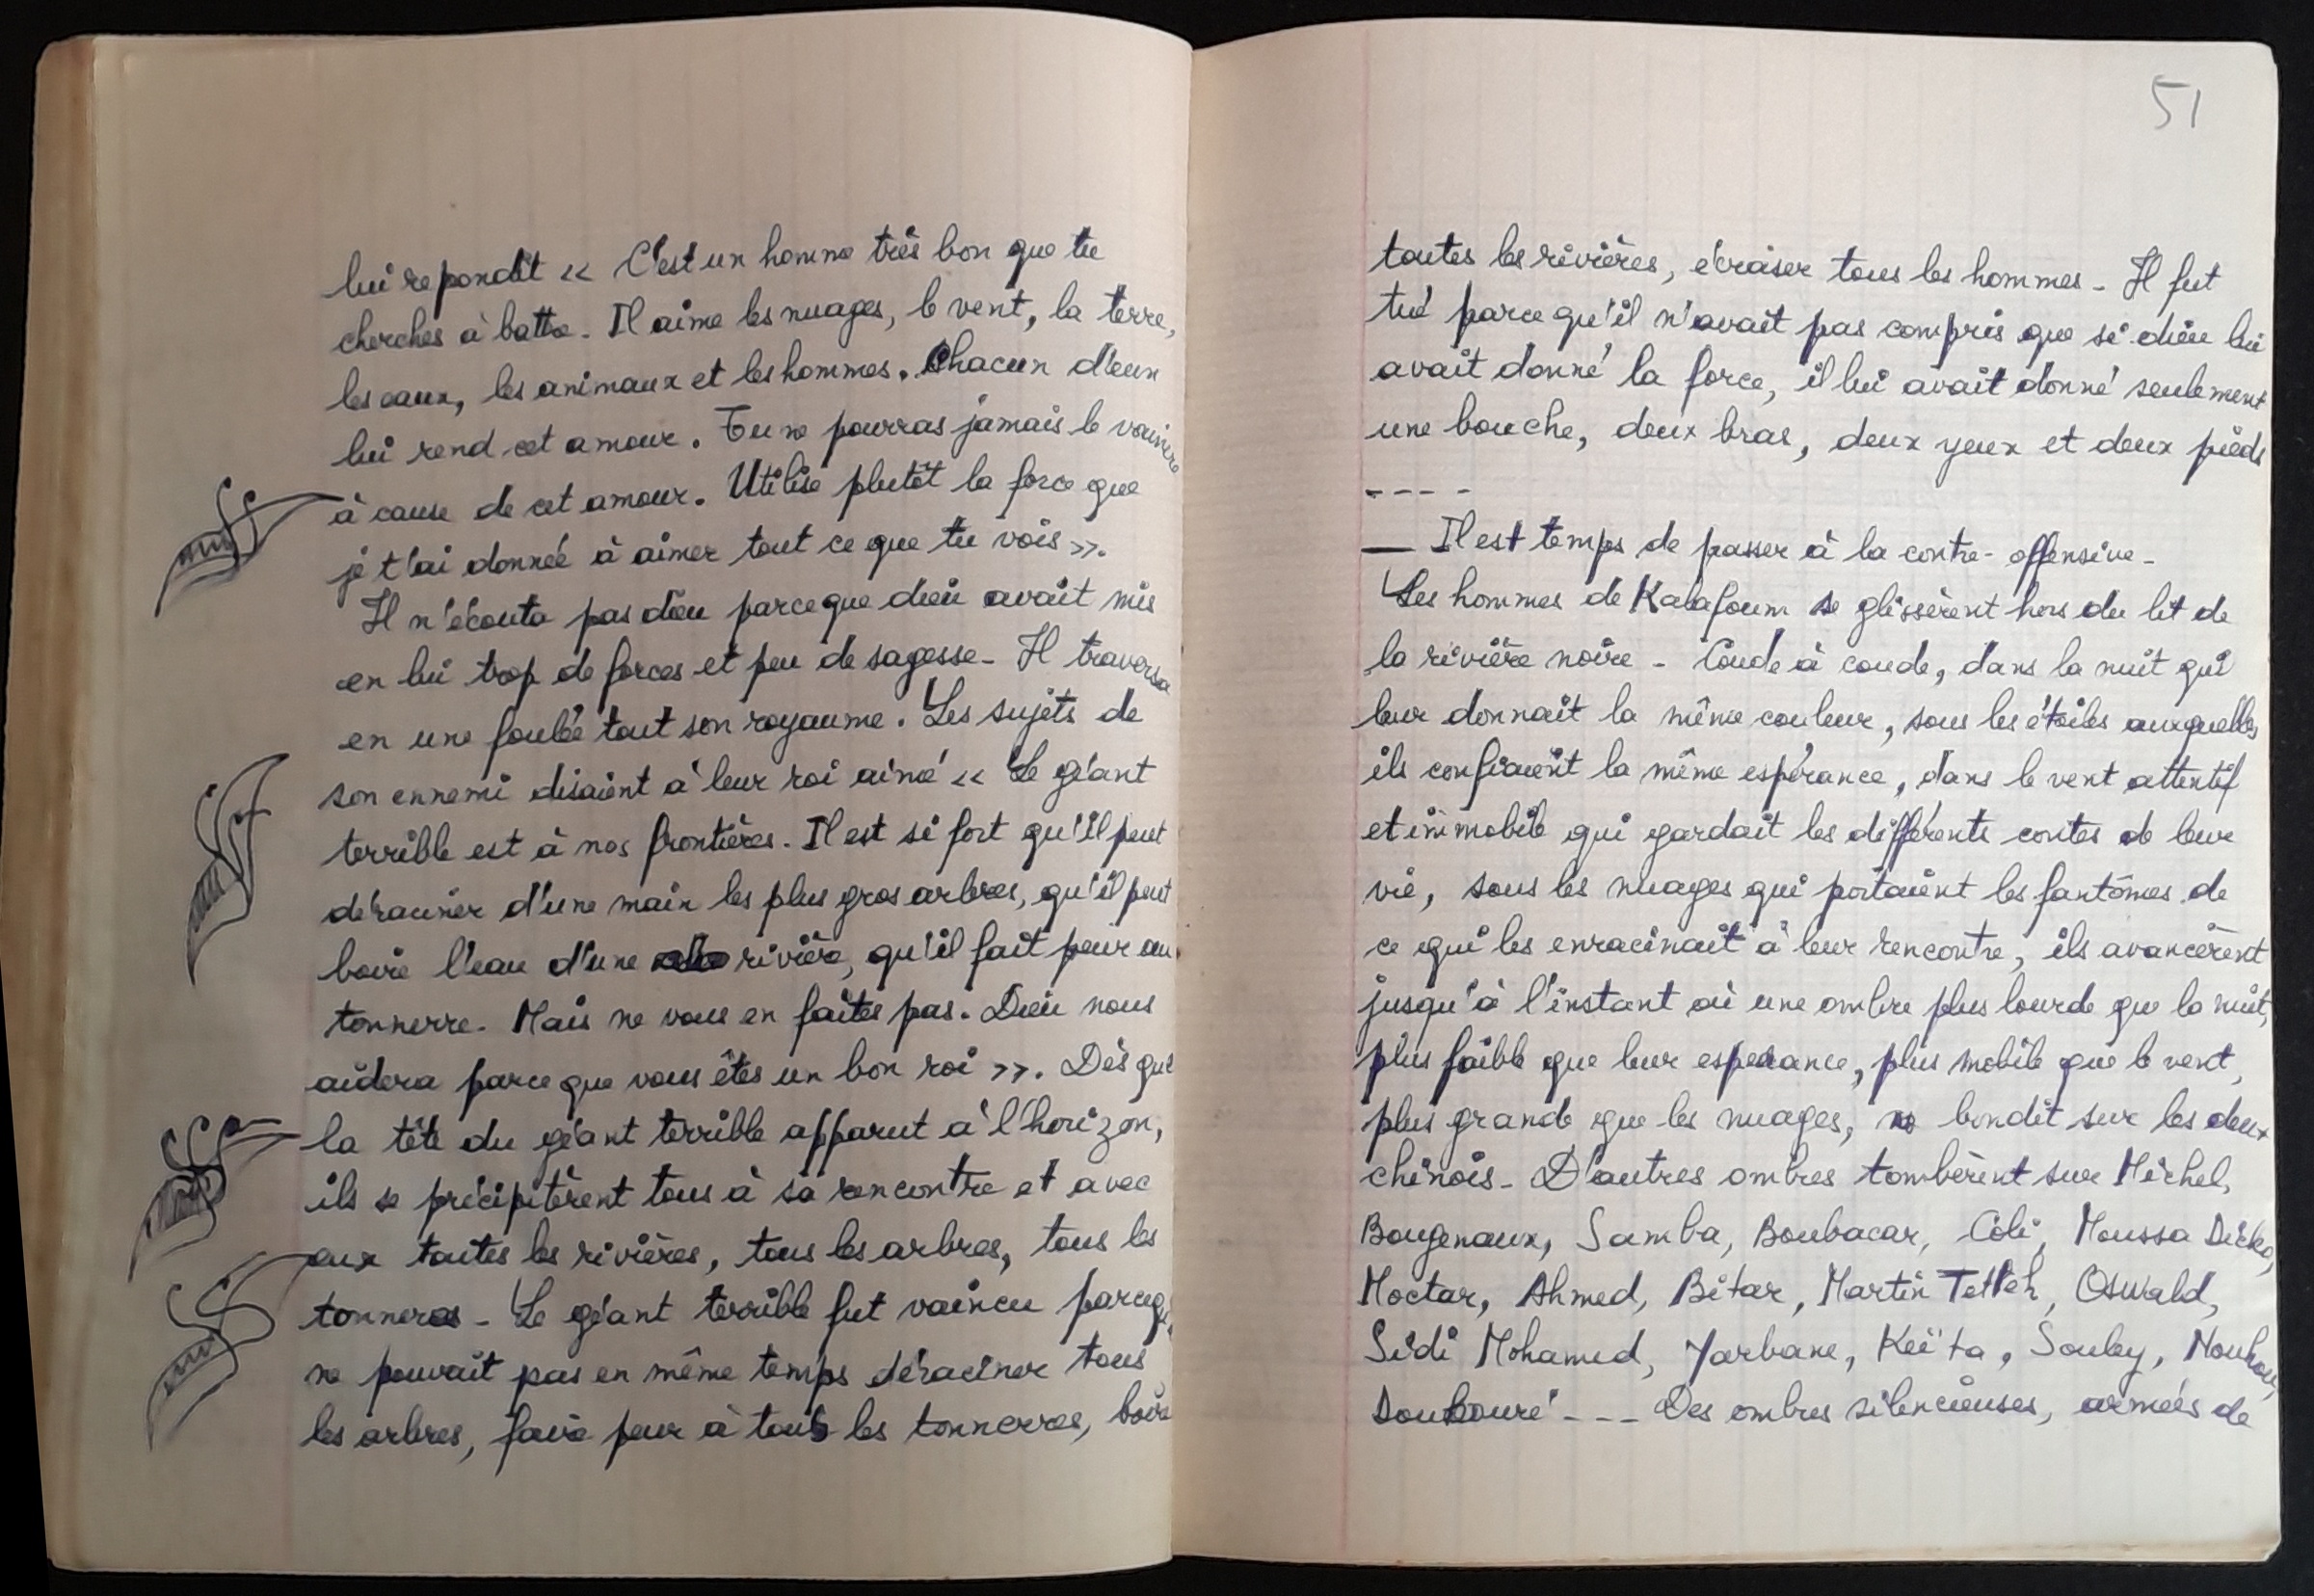 lui repondit << C'est un homme très bon que tu
cherches à battre - Il aime les nuages, le vent, la terre,
les eaux, les animaux et les hommes. Chacun d'eux
lui rend cet amour. Tu ne pourras jamais le vaincre
à cause de cet amour. Utilise plutôt la force que
je t'ai donnée à aimer tout ce que tu vois >>.
Il n'écouta pas dieu parce que dieu avait mis
en lui trop de forces et peu de sagesse - Il traversa
en une foulée tout son royaume. Les sujets de
son ennemi disaient à leur roi aimé << Le géant
terrible est à nos frontières. Il est si fort qu'il peut
déraciner d'une main les plus gros arbres, qu'il peut
boire l'eau d'une rivière, qu'il fait peur au
tonnerre. Mais ne vous en faites pas. Dieu nous
aidera parce que vous êtes un bon roi >>. Dès que
la tête du géant terrible apparut à l'horizon,
ils se précipitèrent tous à sa rencontre et avec
eux toutes les rivières, tous les arbres, tous les
tonneres - Le géant terrible fut vaincu parcequ'il
ne pouvait pas en même temps déraciner tous
les arbres, faire peur à tous les tonnerres, boire
51
toutes les rivières, écraser tous les hommes - Il fut
tué parce qu'il n'avait pas compris que si dieu lui
avait donné la force, il lui avait donné seulement
une bouche, deux bras, deux yeux et deux pieds
- - - -
— Il est temps de passer à la contre-offensive -
Les hommes de Kalafoum se glissèrent hors du lit de
la rivière noire - Coude à coude, dans la nuit qui
leur donnait la même couleur, sous les étoiles auxquelles
ils confiaient la même espérance, dans le vent attentif
et immobile qui gardait les différents contes de leur
vie, sous les nuages qui portaient les fantômes de
ce qui les enracinait à leur rencontre, ils avancèrent
jusqu'à l'instant où une ombre plus lourde que la nuit,
plus faible que leur espérance, plus mobile que le vent,
plus grande que les nuages, bondit sur les deux
chinois - D'autres ombres tombèrent sur Michel,
Bougenaux, Samba, Boubacar, Coli, Moussa Dicko,
Moctar, Ahmed, Bitar, Martin Tetteh, Oswald,
Sidi Mohamed, Yarbane, Keïta, Souley, Nouhou,
Doukouré - - - Des ombres silencieuses, armées de